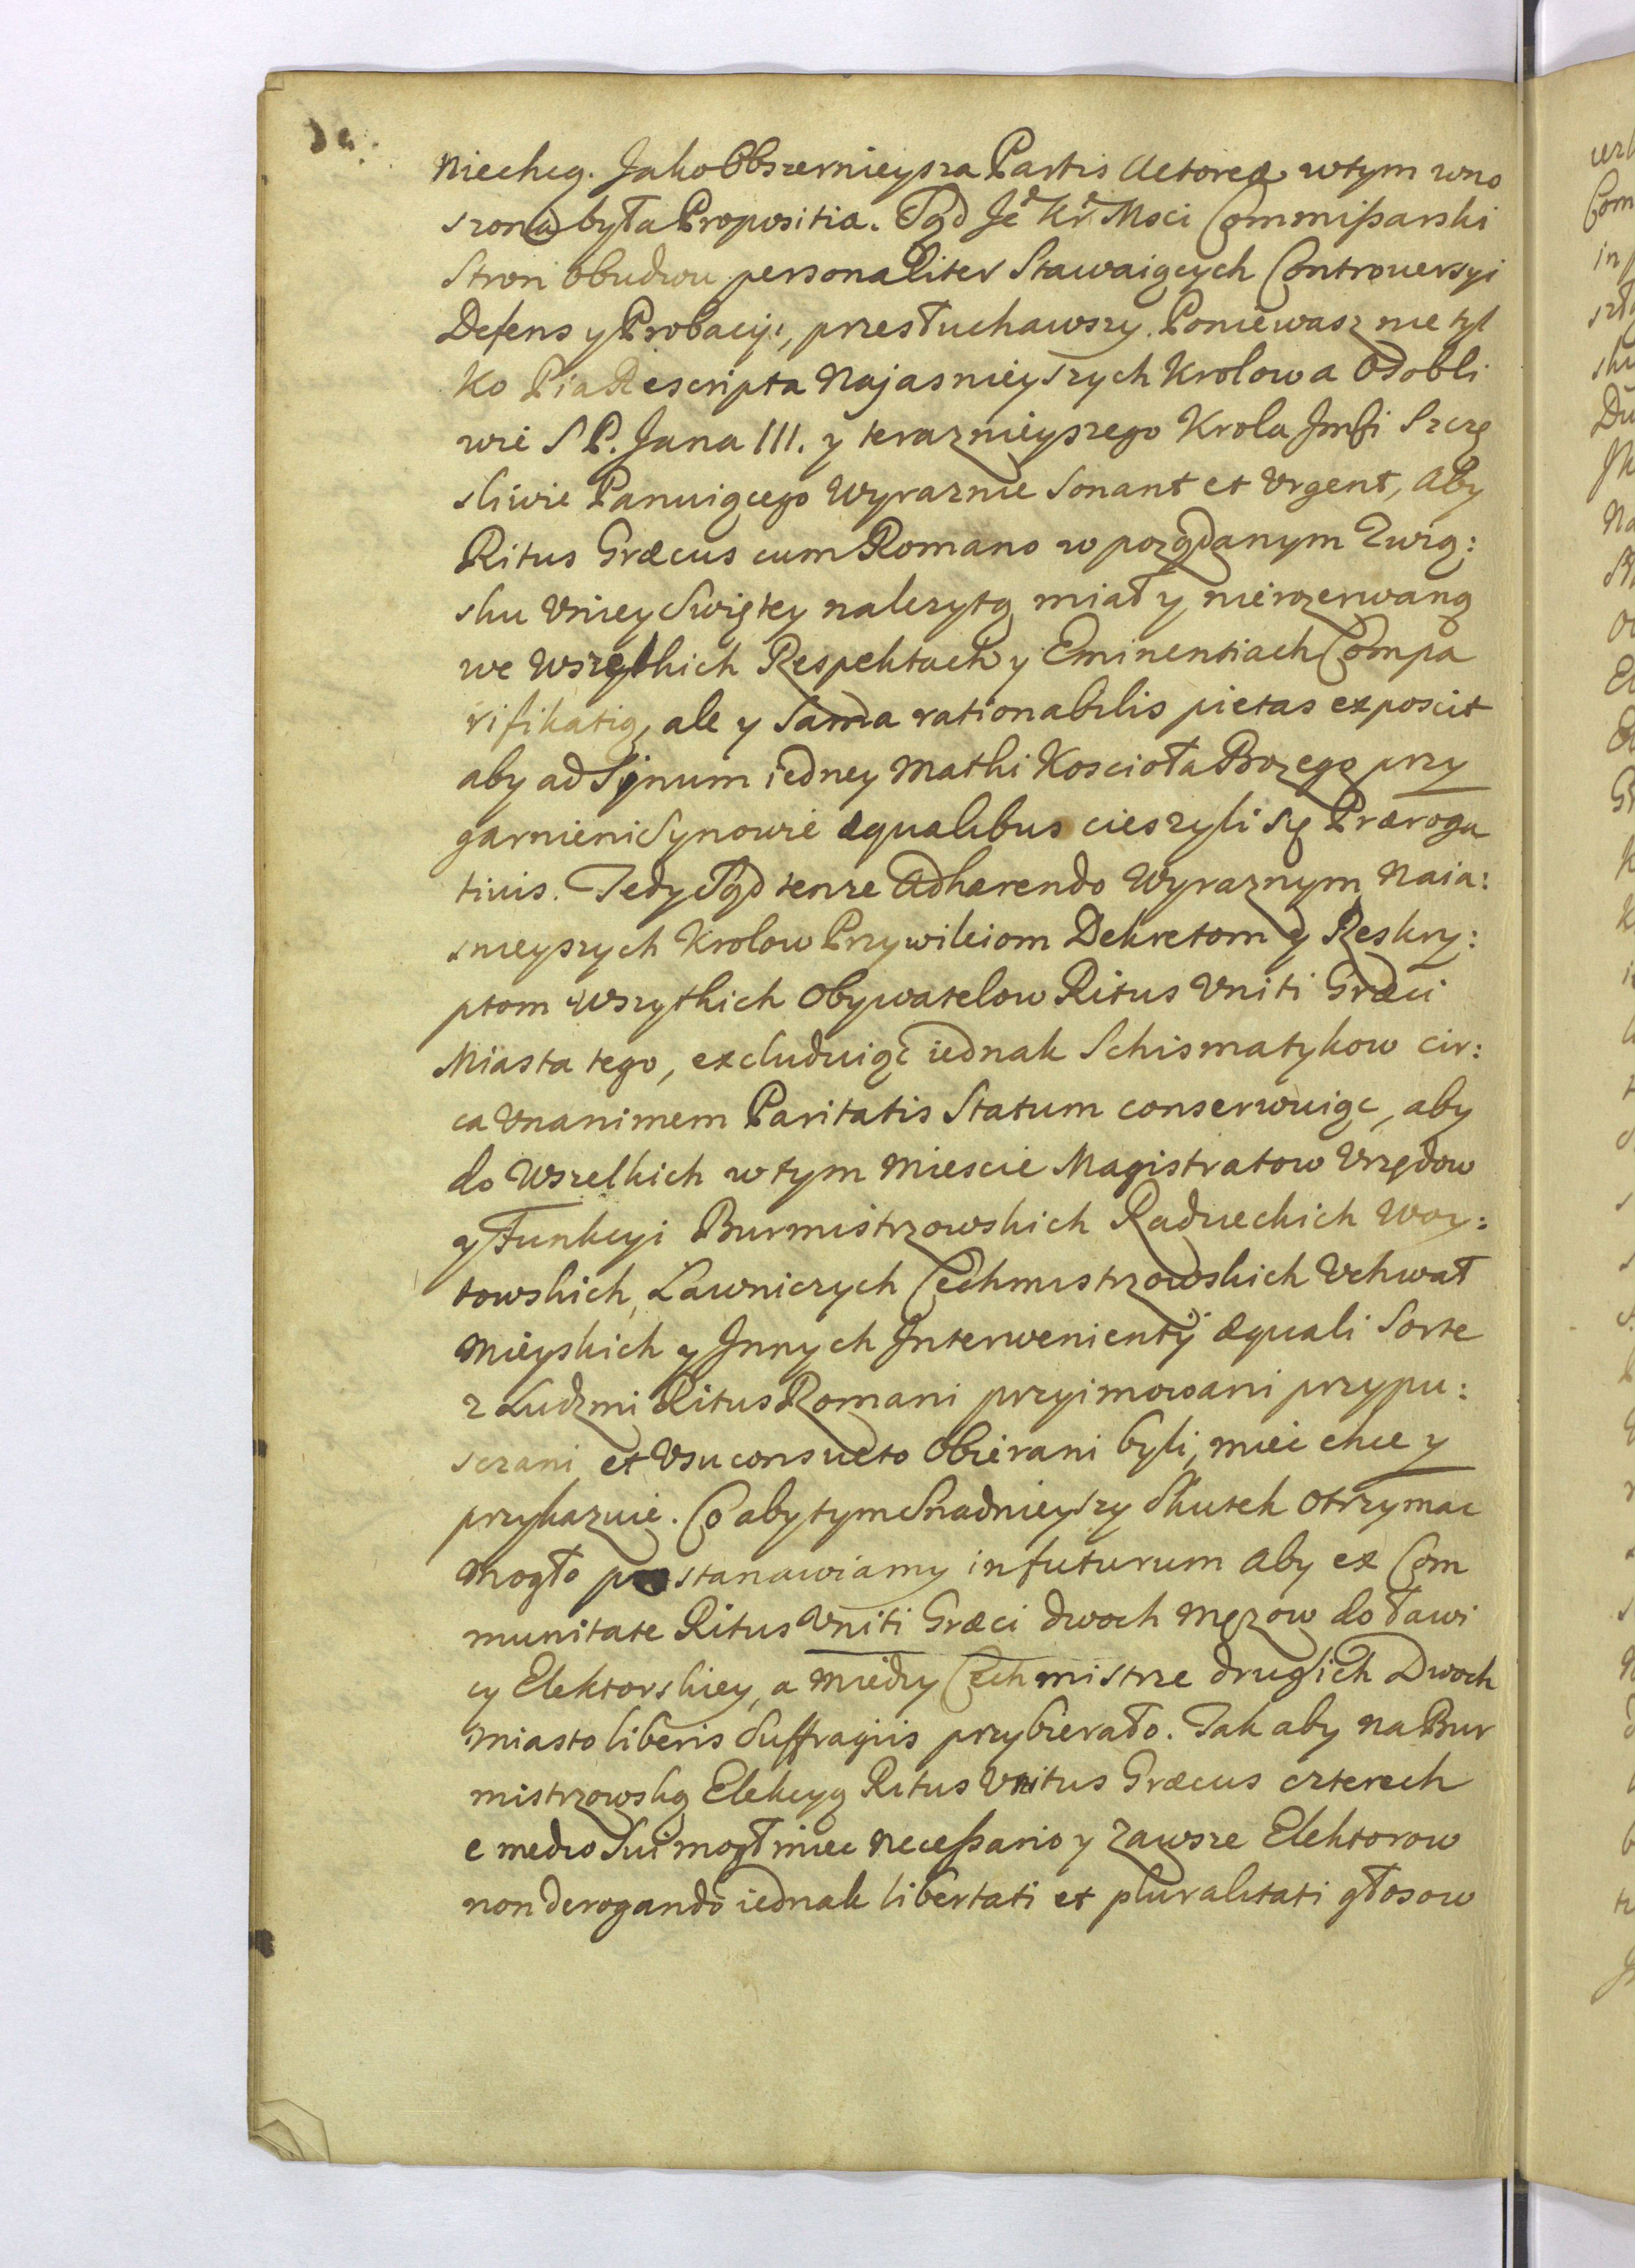 Niechcą. Jako Obszernieysza Partis Actoreæ wtym wno
szona była Propositia. Sąd Je Kr. Msci Commißarski
Stron Obudwu personaliter Stawaiących Controuersyi
Defens y Probacyi, przesłuchawszy. Poniewasz nie tyl
ko Pia Rescripta Najasnieyszych Krolow a Osobli
wie S P. Jana III. y teraznieyszego Krola Jmsi Szczę
sliwie Panuiącego Wyraznie Sonant et Vrgent, aby
Ritus Græcus cum Romano w poządanym Zwią:
sku Vniey Swiętey nalezytą miał y nierozerwaną
we Wszytkich Respektach y Eminentiach Compa
rifikatią, ale y Sama rationabilis pietas exposcit
aby ad Sinum iedney Matki Koscioła Bozego przy
garnieni Synowie æqualibus cieszyli Się Præroga
tiuis. Tedy Sąd tenze Adhærendo Wyraznym Naia:
snieyszych Krolow Przywileiom Dekretom y Reskry:
ptom Wszytkich Obywatelow Ritus Vniti Græci
Miasta tego, excluduiąc iednak Schismatykow cir:
ca Vnanimem Paritatis Statum conserwuiąc, aby
do Wszelkich w tym Miescie Magistratow Vrzędow
y Funkcyi Burmistrzowskich Radzieckich Woy:
towskich, Ławniczych Cechmistrzowskich Vchwał
Mieyskich y Jnnych Jnterwenienty æquali Sorte
z Ludzmi Ritus Romani przyimowani przypu:
szczani et Vsu consueto Obierani byli, miec chce y
przykazuie. Co aby tym Snadnieyszy Skutek otrzymac
Mogło postanawiamy in futurum Aby ex Com
munitate Ritus Vniti Græci dwoch Męzow do ławi
cy Elektorskiey, a Miedzy Cechmistrze drugich Dwoch
Miasto liberis Suffragiis przybierało. Tak aby na Bur
mistrzowską Elekcyą Ritus Vnitus Græcus czterech
e medio Sui mogł miec Necessario y zawsze Elektorow
non derogando iednak libertati et pluralitati głosow